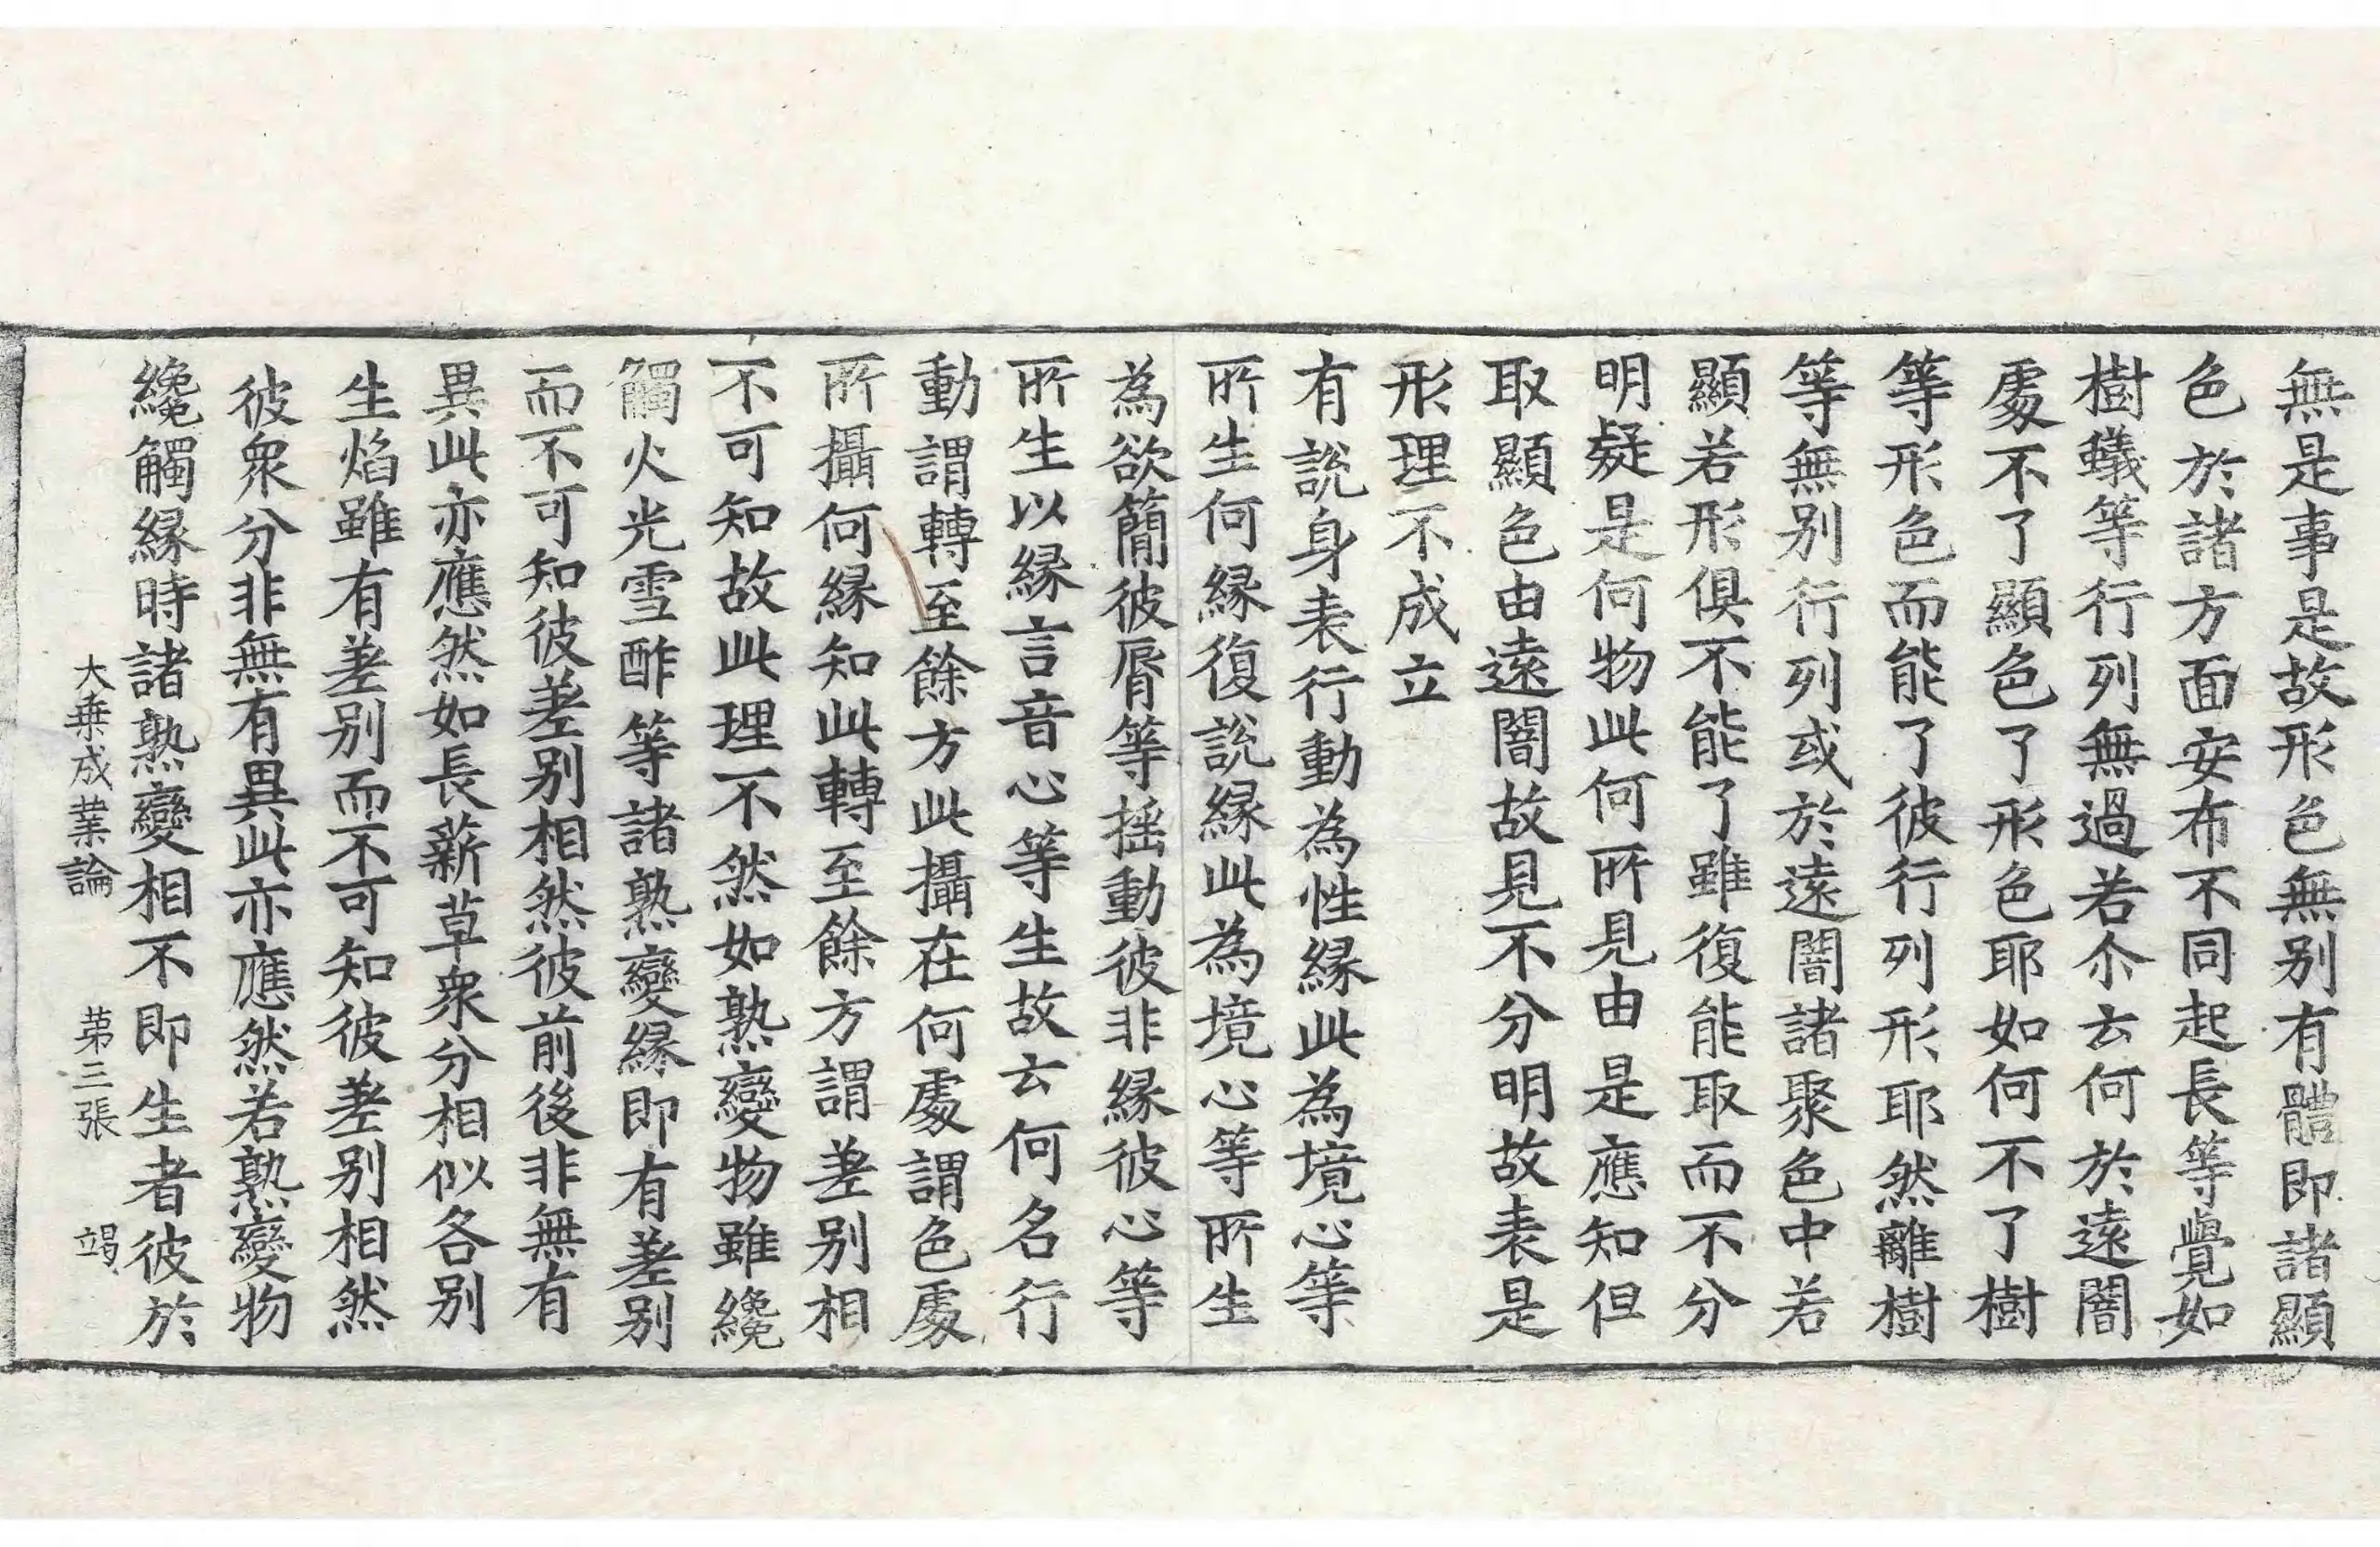 無是事是故形色無别有體即諸顯
色於諸方面安布不同起長等覺如
樹蟻等行列無過若尒云何於遠闇
處不了顯色了形色耶如何不了樹
等形色而能了彼行列形耶然離樹
等無别行列或於遠闇諸聚色中若
顯若形俱不能了雖復能取而不分
明疑是何物此何所見由是應知但
取顯色由遠闇故見不分明故表是
形理不成立
有說身表行動為性緣此為境心等
所生何緣復說緣此為境心等所生
為欲簡彼脣等摇動彼非緣彼心等
所生以緣言音心等生故云何名行
動謂轉至餘方此攝在何處謂色處
所攝何緣知此轉至餘方謂差别相
不可知故此理不然如熟變物雖纔
觸火光雪酢等諸熟變緣即有差别
而不可知彼差别相然彼前後非無有
異此亦應然如長薪草衆分相似各别
生焰雖有差别而不可知彼差别相然
彼衆分非無有異此亦應然若熟變物
纔觸緣時諸熟變相不即生者彼於
大乗成業論 第三張 竭